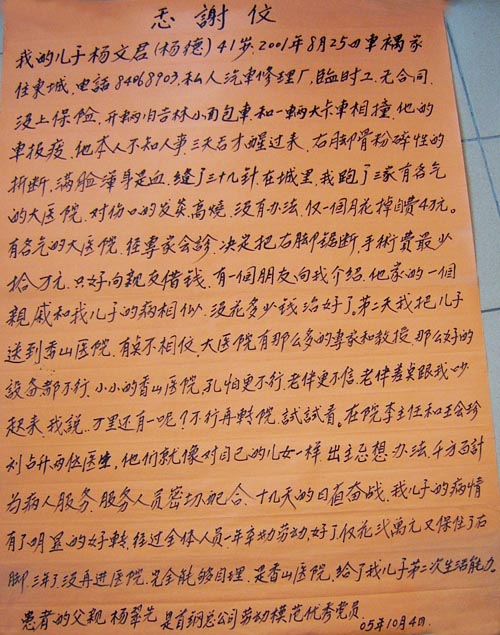 謝
我的儿子杨文君(杨德)41岁.2001年8月25日車禍家
住東城.电話84068903.私人汽車修理厂,臨时工.无合同.
没上保险.开辆旧吉林小面包車和一辆大卡車相撞.他的
車报废.他本人不知人事.三天后才醒过来.右脚骨粉碎性的
折断.满脸渾身是血.缝了三十九針.在城里.我跑了三家有名气
的大医院.对伤口的发炎高燒.没有办法.仅一個月花掉自費4万元。
有名气的大医院.径專家会診.决定把右脚鋸断.手術費最少
拾万元.只好向親友借钱.有一個朋友向我介绍.他家的一個
親戚和我儿子的病相似.没花多少钱治好了.第二天我把儿子
送到香山医院.有点不相信.大医院有那么多的專家和教授.那么好的
設备都不行.小小的香山医院.孔怕更不行.老伴更不信.老伴差点跟我吵
起来.我説..万里还有一呢?不行再轉院.試試看。在院李主任和王会珍
刘占升两位医生.他们就像对自己的儿女一样.出主意想办法.千方百計
为病人服务.服务人员密切配合.十几天的日夜奋战.我儿子的病情
有了明显的好轉.径过全体人员一年辛勤劳动.好了.仅花 萬元又保住了右
脚.三年了没再进医院.完全能够自理.是香山医院.给了我儿子第二次生活能力.
患者的父親 杨 先 是首鋼总公司劳动模范优秀党员.
05年10月4日.